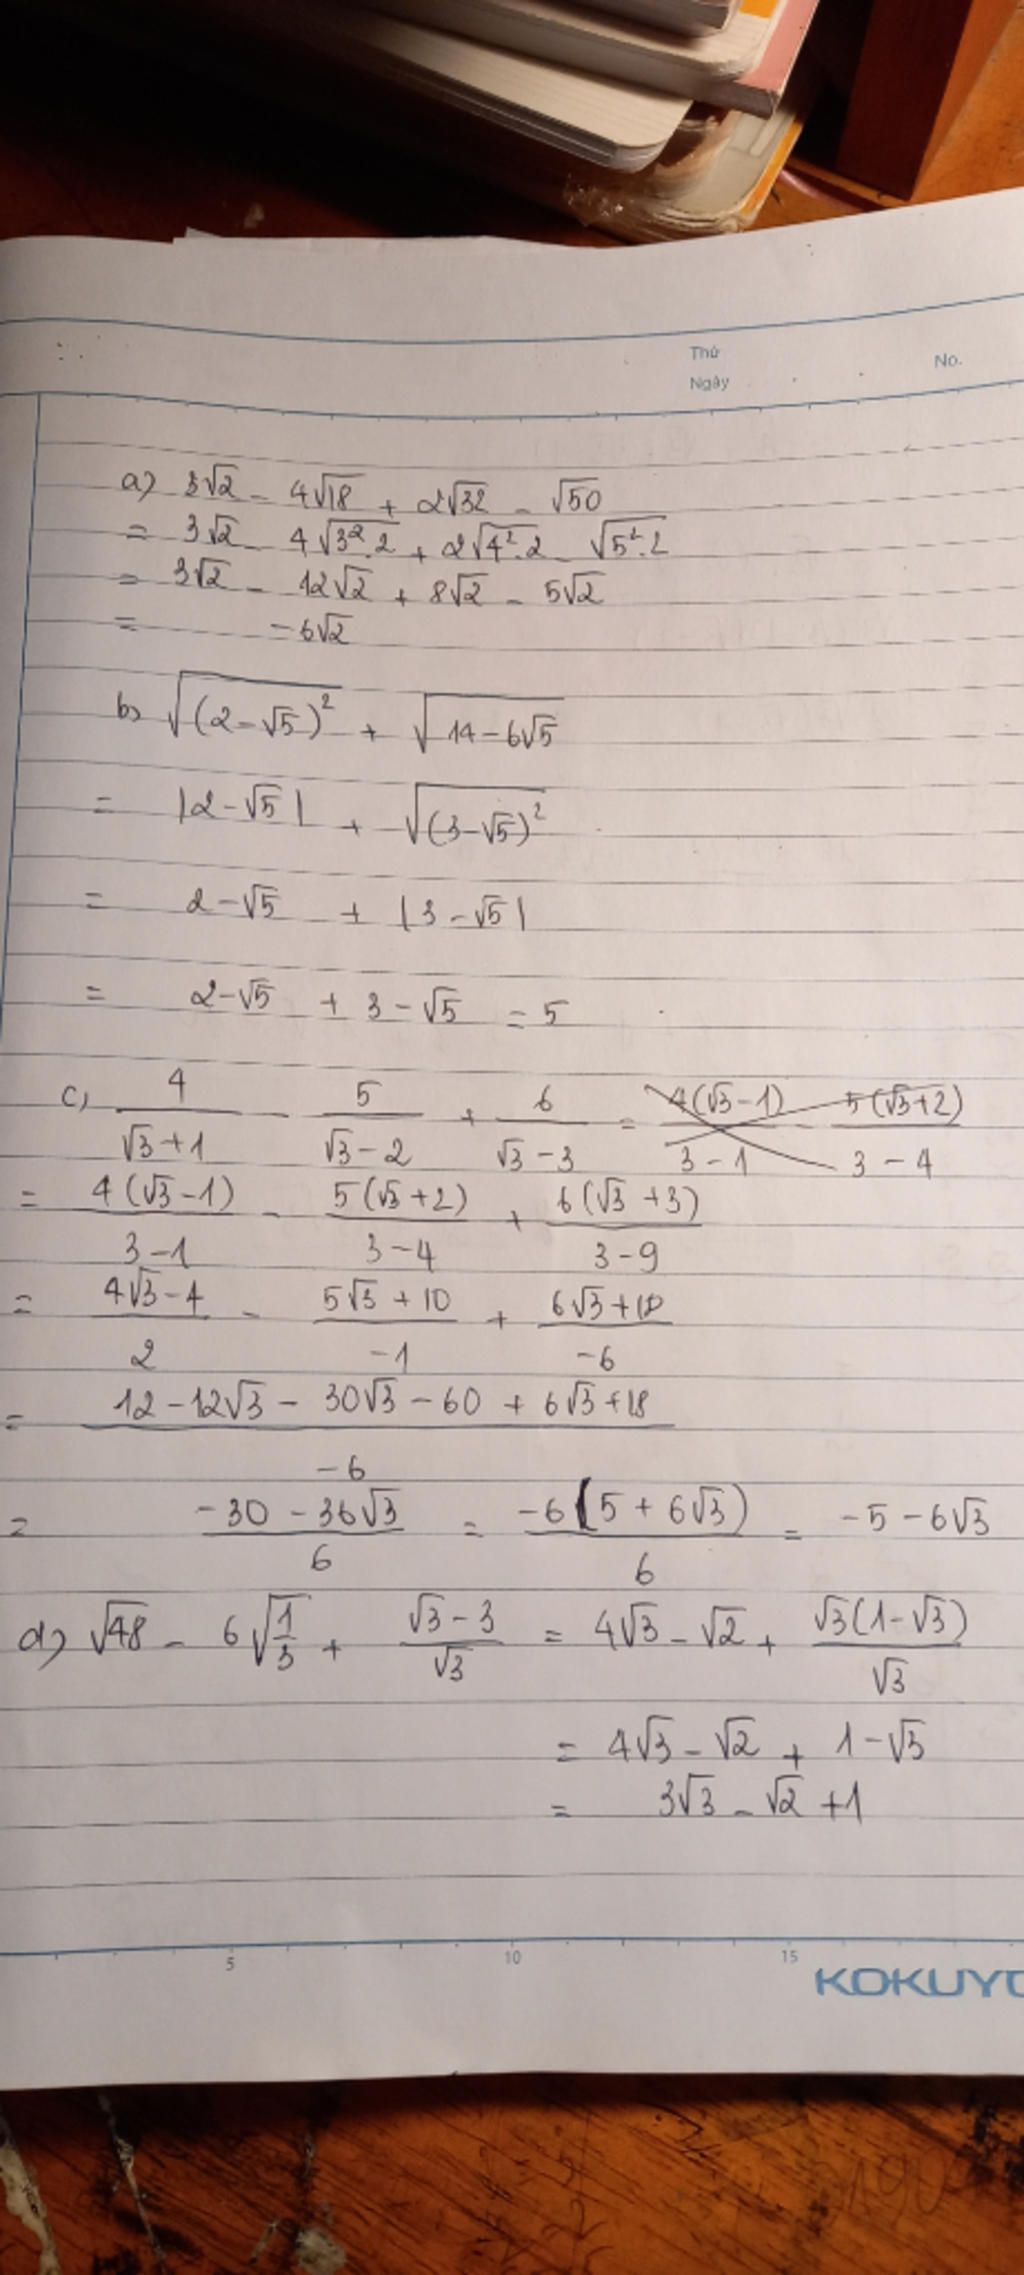 Thứ
Ngày
No.
a) 3√2 - 4√18 + 2√32 - √50
= 3√2 - 4√(3².2) + 2√(4².2) - √(5².2)
= 3√2 - 12√2 + 8√2 - 5√2
= -6√2
b) √((2-√5)²) + √(14-6√5)
= |2-√5| + √((3-√5)²)
= 2-√5 + |3-√5|
= 2-√5 + 3-√5 = 5
c) 4/(√3+1) - 5/(√3-2) + 6/(√3-3) = 4(√3-1)/(3-1) - 5(√3+2)/(3-4)
= 4(√3-1)/(3-1) - 5(√3+2)/(3-4) + 6(√3+3)/(3-9)
= (4√3-4)/2 - (5√3+10)/(-1) + (6√3+18)/(-6)
= (12-12√3 - 30√3-60 + 6√3+18)/(-6)
= (-30-36√3)/6 = -6(5+6√3)/6 = -5-6√3
d) √48 - 6√(1/3) + (√3-3)/√3 = 4√3-√2 + √3(1-√3)/√3
= 4√3-√2 + 1-√3
= 3√3-√2+1
5 10 15
KOKUYO